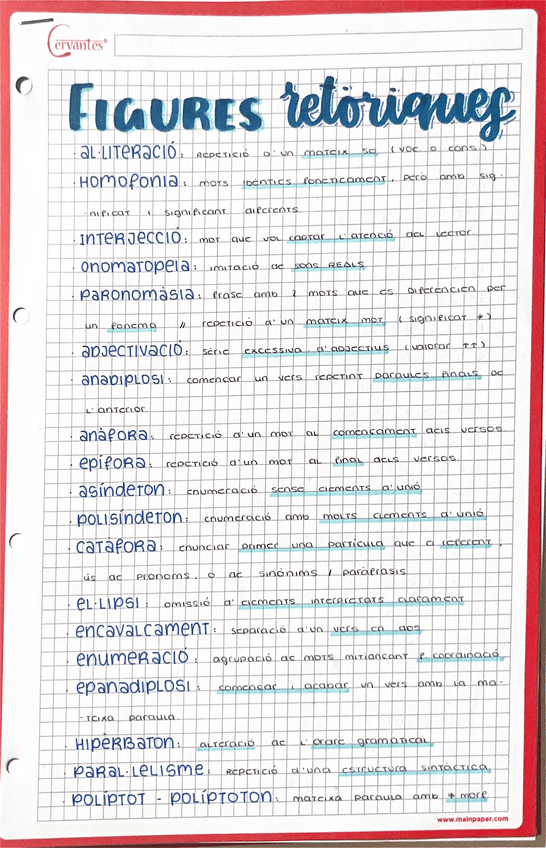 Cervantes®
FIGURES retòriques
· AL·LITERACIÓ: REPETICIÓ D'UN MATEIX SO (VOC O CONS.)
· HOMOFONIA: MOTS IDÈNTICS FONÈTICAMENT, PERÒ AMB SIG-
-NIFICAT I SIGNIFICANT DIFERENTS.
· INTERJECCIÓ: MOT QUE VOL CAPTAR L'ATENCIÓ DEL LECTOR.
· ONOMATOPEIA: IMITACIÓ DE SONS REALS
· PARONOMÀSIA: FRASE AMB 2 MOTS QUE ES DIFERENCIEN PER
UN FONEMA // REPETICIÓ D'UN MATEIX MOT (SIGNIFICAT ≠)
· ADJECTIVACIÓ: SÈRIE EXCESSIVA D'ADJECTIUS (VALORAR ↑↑)
· ANADIPLOSI: COMENÇAR UN VERS REPETINT PARAULES FINALS DE
L'ANTERIOR.
· ANÀFORA: REPETICIÓ D'UN MOT AL COMENÇAMENT DELS VERSOS.
· EPÍFORA: REPETICIÓ D'UN MOT AL FINAL DELS VERSOS.
· ASÍNDETON: ENUMERACIÓ SENSE ELEMENTS D'UNIÓ
· POLISÍNDETON: ENUMERACIÓ AMB MOLTS ELEMENTS D'UNIÓ
· CATÀFORA: ENUNCIAR PRIMER UNA PARTÍCULA QUE A REFERENT,
ÚS DE PRONOMS, O DE SINÒNIMS / PARÀFRASIS
· EL·LIPSI: OMISSIÓ D'ELEMENTS INTERPRETATS CLARAMENT
· ENCAVALCAMENT: SEPARACIÓ D'UN VERS EN DOS.
· ENUMERACIÓ: AGRUPACIÓ DE MOTS MITJANÇANT COORDINACIÓ
· EPANADIPLOSI: COMENÇAR I ACABAR UN VERS AMB LA MA-
-TEIXA PARAULA.
· HIPÈRBATON: ALTERACIÓ DE L'ORDRE GRAMATICAL
· PARAL·LELISME: REPETICIÓ D'UNA ESTRUCTURA SINTÀCTICA
· POLÍPTOT - POLÍPTOTON: MATEIXA PARAULA AMB ≠ MORF.
www.mainpaper.com